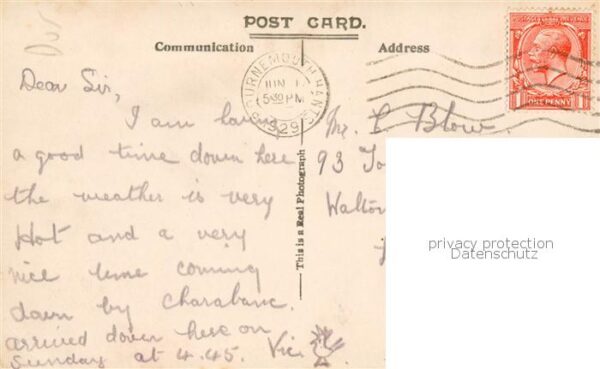 POST CARD.
Communication
Address
BOURNEMOUTH HANTS
JUN
5 30 PM
1929
POSTAGE REVENUE
ONE PENNY
Dear Sir,
I am having
a good time down here
the weather is very
Hot and a very
nice time coming
down by Charabanc.
arrived down here on
Sunday at 4.45. Vic
This is a Real Photograph
Mr. C Blow
93
Walton
privacy protection
Datenschutz